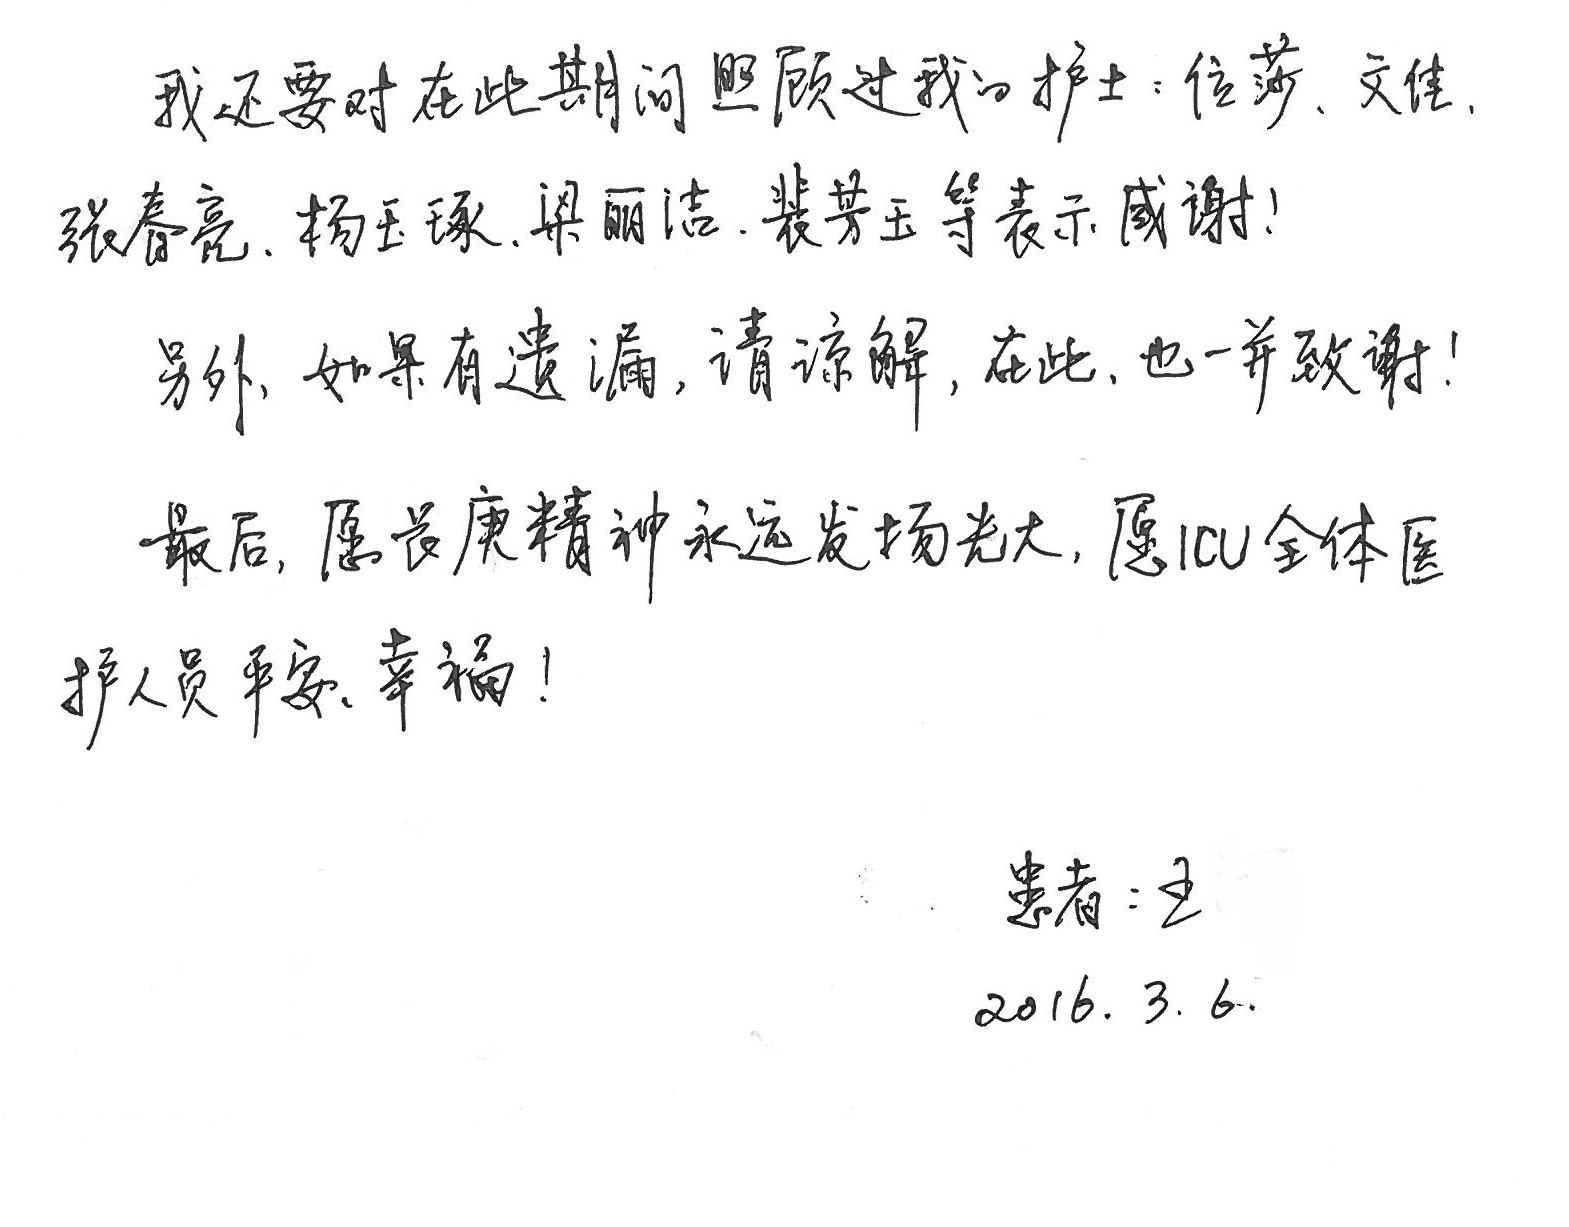 我还要对在此期间照顾过我的护士：位莎、文佳、
张春亮、杨玉琢、梁丽洁、裴芳玉等表示感谢！
另外，如果有遗漏，请谅解，在此，也一并致谢！
最后，愿长庚精神永远发扬光大，愿ICU全体医
护人员平安、幸福！
患者：王
2016.3.6.